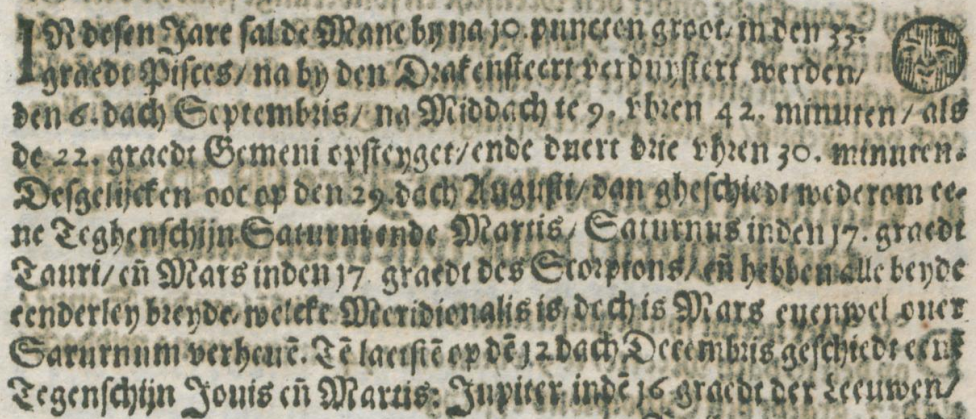 IN desen Jare sal de Mane by na 10. puncten groot, in den 33.
graedt Pisces / na by den Draken steert verduystert werden /
den 6. dach Septembris / na Middach te 9. vhren 42. minuten / als
de 22. graedt Gemeni opsteyget / ende duert drie vhren 30. minuten.
Desgelijcken ooc op den 29. dach Augusti / dan gheschiedt wederom ee-
ne Teghenschijn Saturni ende Martis / Saturnus inden 17. graedt
Tauri / eñ Mars inden 17. graedt des Scorpions / eñ hebben alle beyde
eenderley breyde, welcke Meridionalis is, doch is Mars euenwel ouer
Saturnum verheuē. Tē laetstē op dē 12 dach Decembris geschiedt eene
Tegenschijn Jouis eñ Martis: Jupiter indē 16 graedt der Leeuwen /